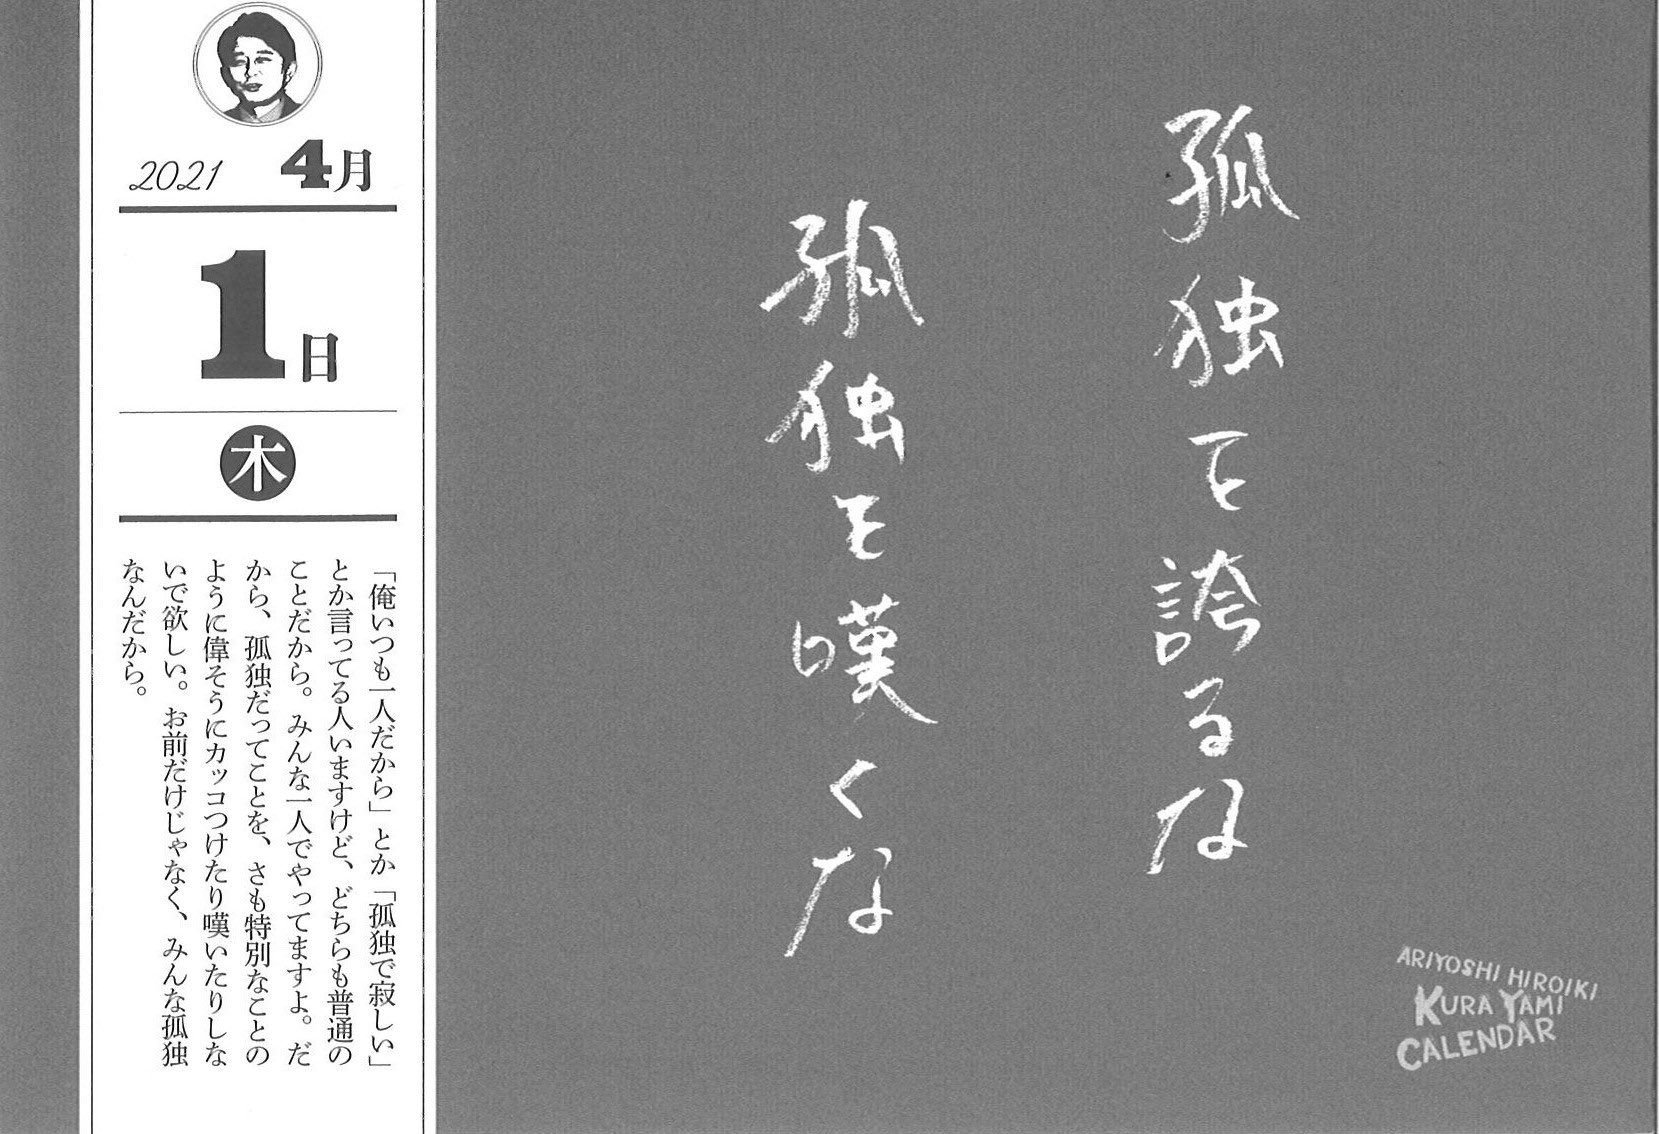 孤独を誇るな
孤独を嘆くな
ARIYOSHI HIROIKI
KURA YAMI
CALENDAR
2021
4月
1日
木
「俺いつも一人だから」とか「孤独で寂しい」
とか言ってる人いますけど、どちらも普通の
ことだから。みんな一人でやってますよ。だ
から、孤独だってことを、さも特別なことの
ように偉そうにカッコつけたり嘆いたりしな
いで欲しい。お前だけじゃなく、みんな孤独
なんだから。